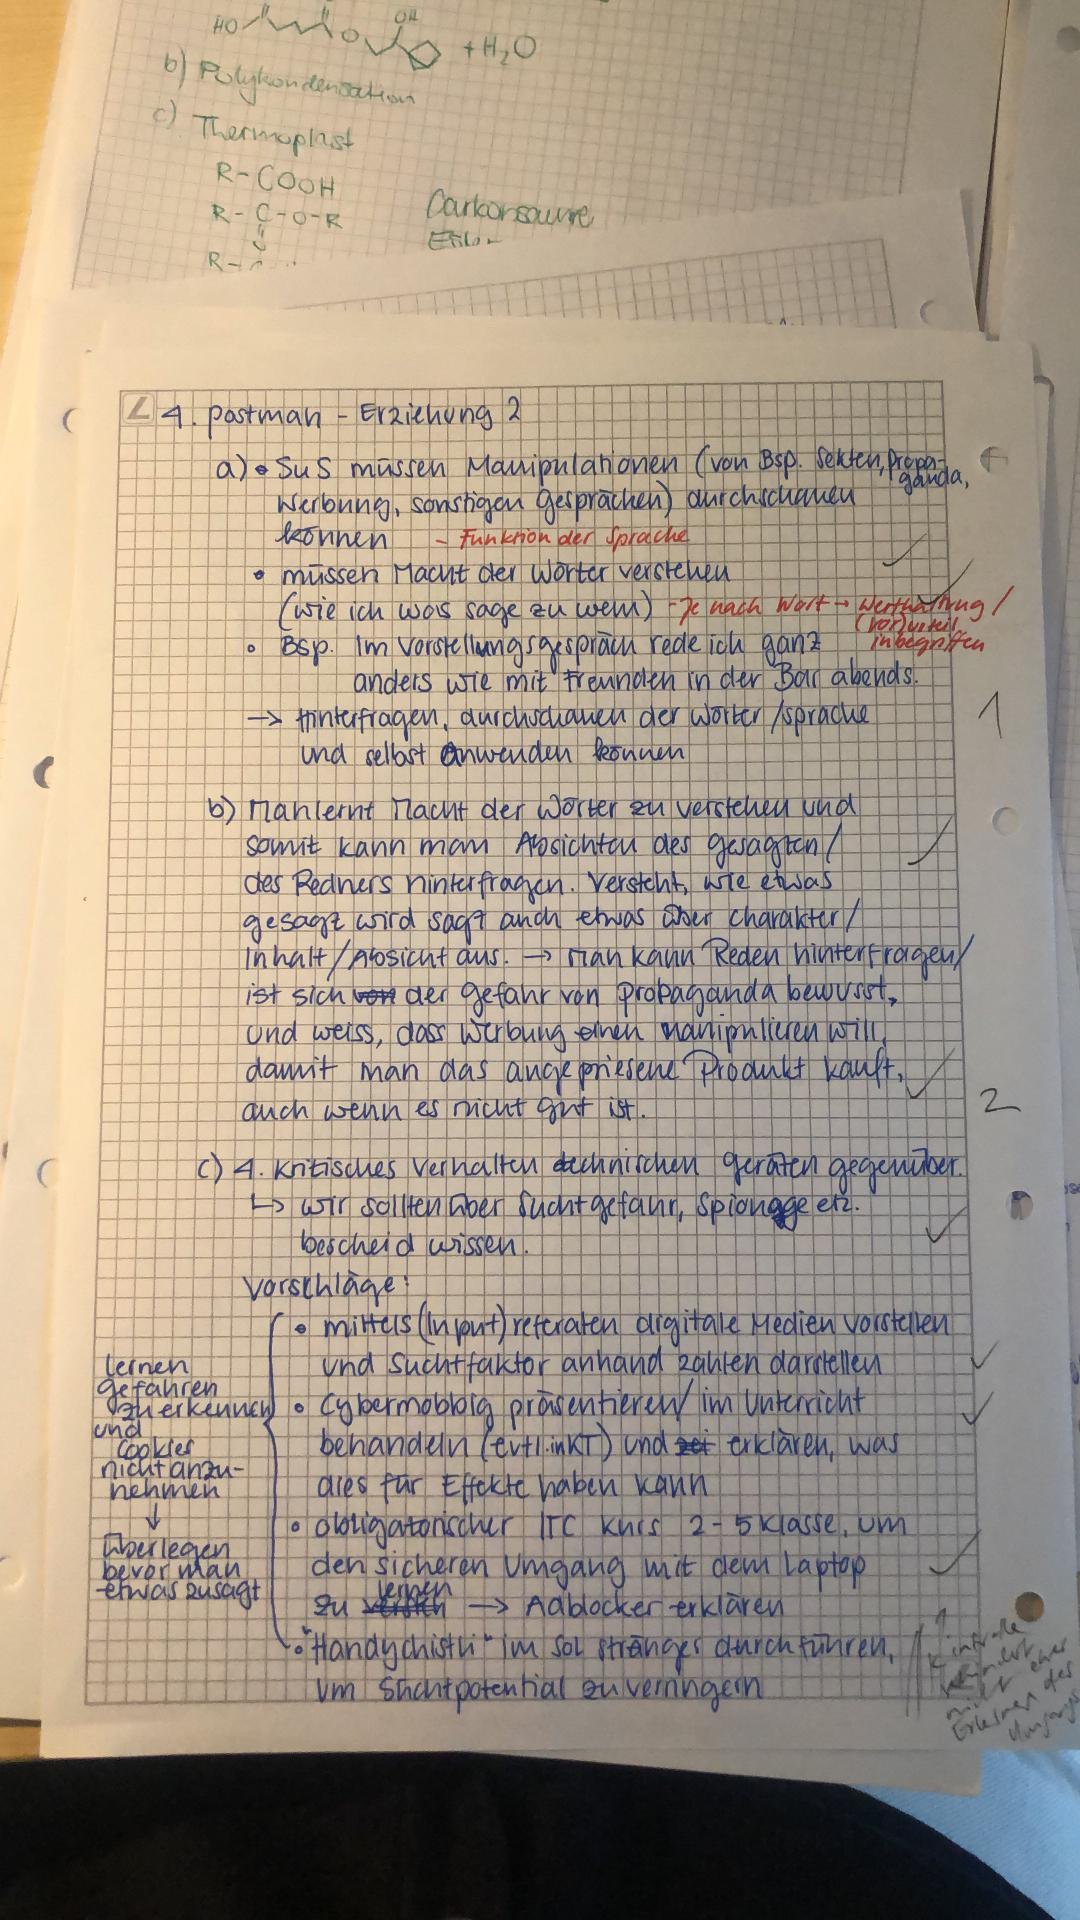 HO O OH + H₂O
b) Polykondensation
c) Thermoplast
R-COOH
R-C-O-R
O
R-C
4. Postman - Erziehung 2
a) • SuS müssen Manipulationen (von Bsp. Sekten, Propa-
ganda,
Werbung, sonstigen Gesprächen) durchschauen
können - Funktion der Sprache
• müssen Macht der Wörter verstehen
(wie ich was sage zu wem) - Je nach Wort → Werthaltung /
(Vor)urteil
inbegriffen
• Bsp. Im Vorstellungsgespräch rede ich ganz
anders wie mit Freunden in der Bar abends.
→ Hinterfragen, durchschauen der Wörter/Sprache
und selbst anwenden können
1
b) Man lernt Macht der Wörter zu verstehen und
somit kann man Absichten des gesagten/
des Redners hinterfragen. Versteht, wie etwas
gesagt wird sagt auch etwas über Charakter/
Inhalt/Absicht aus. → Man kann Reden hinterfragen/
ist sich von der Gefahr von Propaganda bewusst,
und weiss, dass Werbung einen manipulieren will,
damit man das angepriesene Produkt kauft,
auch wenn es nicht gut ist.
2
c) 4. Kritisches Verhalten technischen Geräten gegenüber.
↳ wir sollten über Suchtgefahr, Spionage etz.
bescheid wissen.
Vorschläge:
• mittels (Input)referaten digitale Medien vorstellen
und Suchtfaktor anhand zahlen darstellen
• Cybermobbig präsentieren/ im Unterricht
behandeln (evtl. in KT) und erklären, was
dies für Effekte haben kann
• obligatorischer ITC Kurs 2-5 Klasse, um
den sicheren Umgang mit dem Laptop
zu lernen → Adblocker erklären
• "Handychistli" im Sol stränger durchführen,
um Suchtpotential zu verringern
lernen
gefahren
zu erkennen
und
Cookies
nicht anzu-
nehmen
↓
Überlegen
bevor man
etwas zusagt